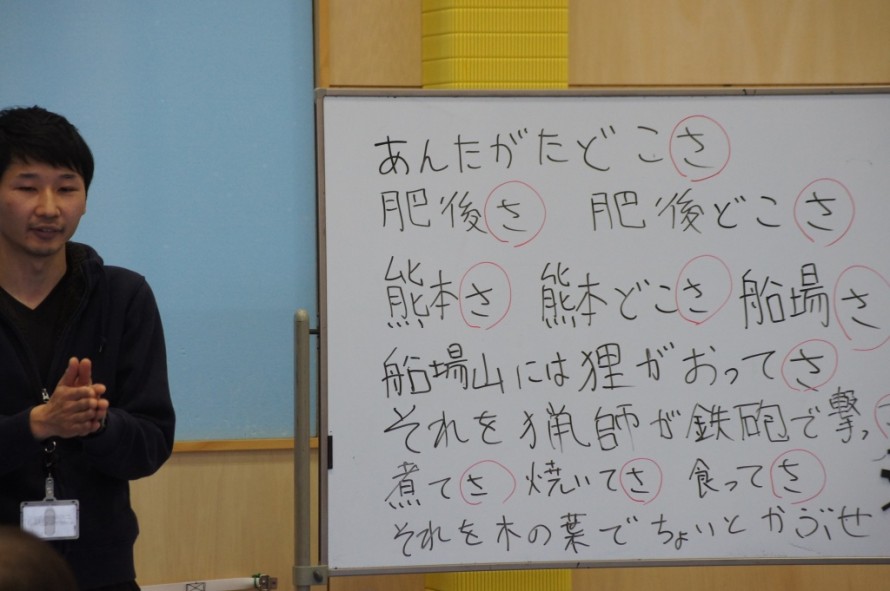 あんたがたどこさ
肥後さ 肥後どこさ
熊本さ 熊本どこさ 船場さ
船場山には狸がおってさ
それを猟師が鉄砲で撃っ
煮てさ 焼いてさ 食ってさ
それを木の葉でちょいとかぶせ